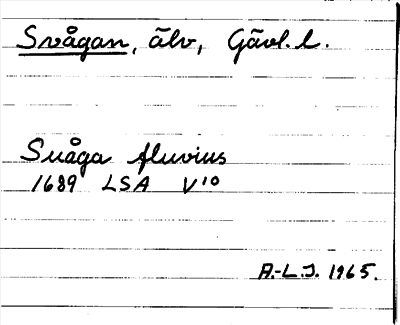 Svågan, älv, Gävl. l.
Suåga fluvius
1689 LSA V¹⁰
A.-L.J. 1965.